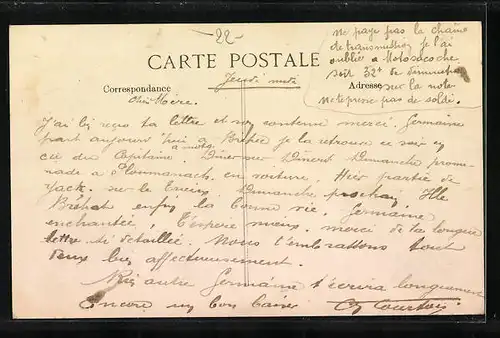 22
ne paye pas la chaîne
de transmission je l'ai
oubliée a Motosacoche
soit 32f de diminution
sur la note
ne te presse pas de solde.
CARTE POSTALE
Correspondance
Adresse
Jeudi
Chère Mère.
J'ai bien reçu ta lettre et son contenu merci. Germaine
part aujourd'hui a je la retrouve ce soir
a moto
du Capitaine. Dîner sur Dinard Dimanche prome
nade a Ploumanach, en voiture. Hier partie de
yack. sur le Dimanche prochain Ile
Bréhat enfin la bonne vie. Germaine
enchantée. T'espère mieux. merci de ta longue
lettre si détaillée. Nous t'embrassons tout
deux bien affectueusement.
Germaine t'écrira longuement
Encore un bon baiser Courtois